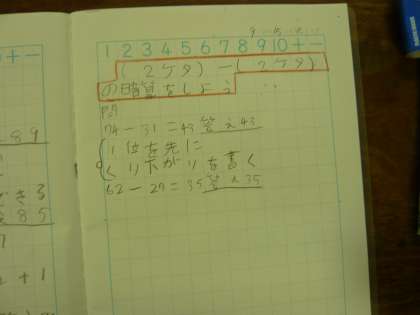 1 2 3 4 5 6 7 8 9 10 + -
(2ケタ)-(2ケタ)
の暗算をしよう
問
74-31=43 答え43
1位を先に
くり下がりを書く
62-27=35 答え35
89
きる
85
2+1